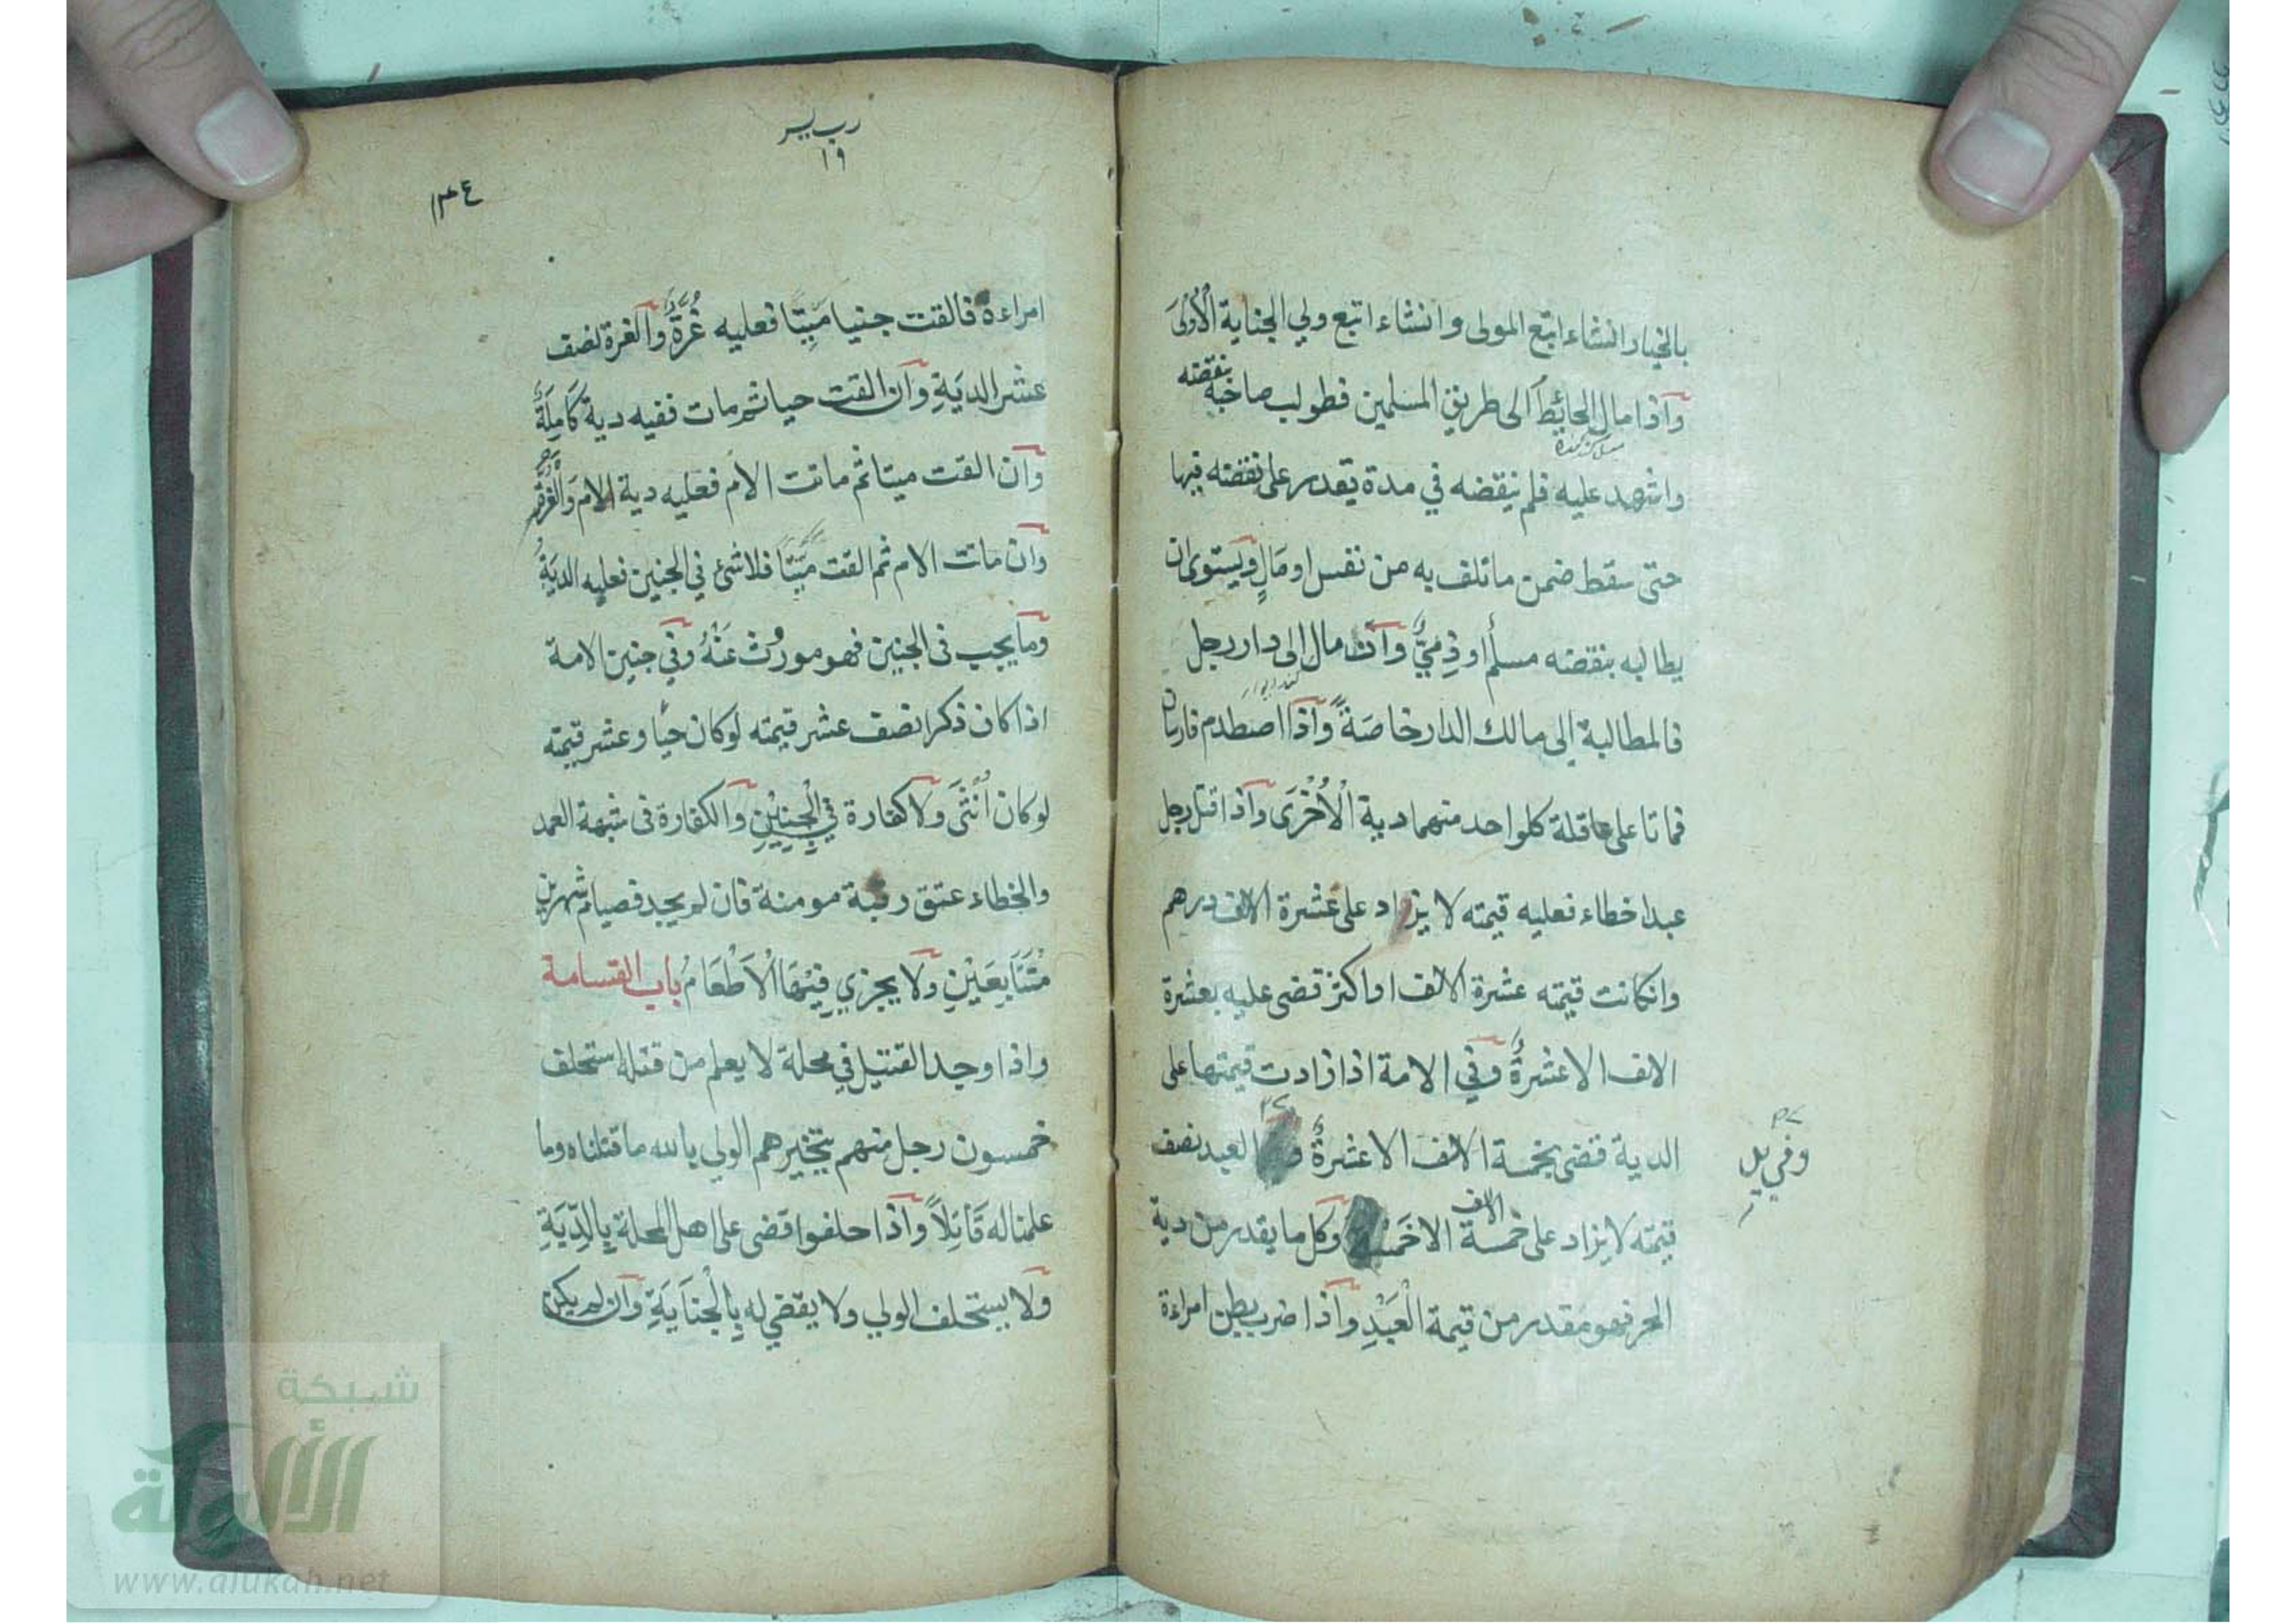 بالخيار انشاء اتبع المولى وانشاء اتبع ولي الجناية الْاُوْلىَ
واذا مال الحائط الى طريق المسلمين فطولب صاحبه بنقضه
واشهد عليه فلم ينقضه في مدة يقدر على نقضه فيها
حتى سقط ضمن ما تلف به من نفس او مَالٍ ويستوى ان
يطالبه بنقضه مسلم او ذِمِيٌّ وان مال الى دار رجل
فالمطالبة الى مالك الدار خاصَةً واذا اصطدم فارسان
فماتا على عاقلة كلواحد منهما دية الْاُخْرَى واذا قتل رجل
عبدا خطاء فعليه قيمته لا يزاد على عشرة الاف درهم
وانكانت قيمته عشرة الاف او اكثر قضى عليه بعشرة
الاف الا عشرةٌ وفي الامة اذا زادت قيمتها على
الدية قضى بخمسة الاف الا عشرةٌ العبد نصف
وفي يد
قيمته لا يزاد على خمسة الاف الا خمسة وكل ما يقدر من دية
الحر فهو مقدر من قيمة الْعَبْدِ واذا ضرب بطن امراءة
١٩
١٣٤
امراءة فالقت جنينا مَيِتًا فعليه غُرَّةٌ والغرة نصف
عشر الديَةِ وان القت حيا ثم مات ففيه دية كَامِلَةٌ
وان القت ميتا ثم ماتت الام فعليه دية الام وَالْغُرَّةُ
وان ماتت الام ثم القت مَيّتًا فلا شئ في الجنين فعليه الديَةُ
وما يجب فى الجنين فهو موروْث عَنْهُ وفي جنين الامة
اذا كان ذكرا نصف عشر قيمته لو كان حيًا وعشر قيمته
لو كان اُنْثَى ولا كفارة في الْجنِيْنِ والكفارة فى شبهة العمد
والخطاء عتق رقبة مومنة فان لم يجد فصيام شهرين
مُتَتَابِعَيْنِ ولا يجزي فِيْهَا الْاَطْعَامُ باب القسامة
واذا وجد القتيل في محلة لا يعلم من قتله استحلف
خمسون رجل منهم يتخيرهم الولي بالله ما قتلناه وما
علمنا له قَاتِلاً واذا حلفوا قضى على اهل المحلة بِالدِّيَةِ
ولا يستحلف الولي ولا يقضي له بِالْجنَايَةِ وان لم يكن
شبكة
الألوكة
www.alukah.net